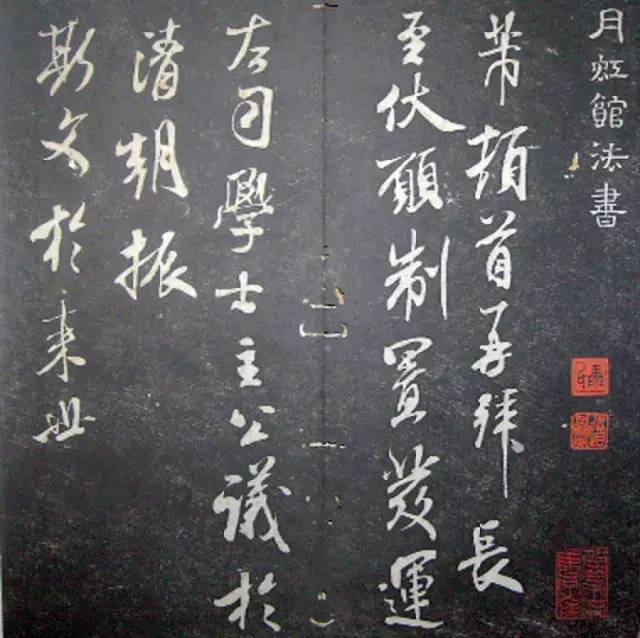 月虹館法書
芾頓首再拜長
至伏願制置發運
左司學士主公議於
清朝振
斯文於來世